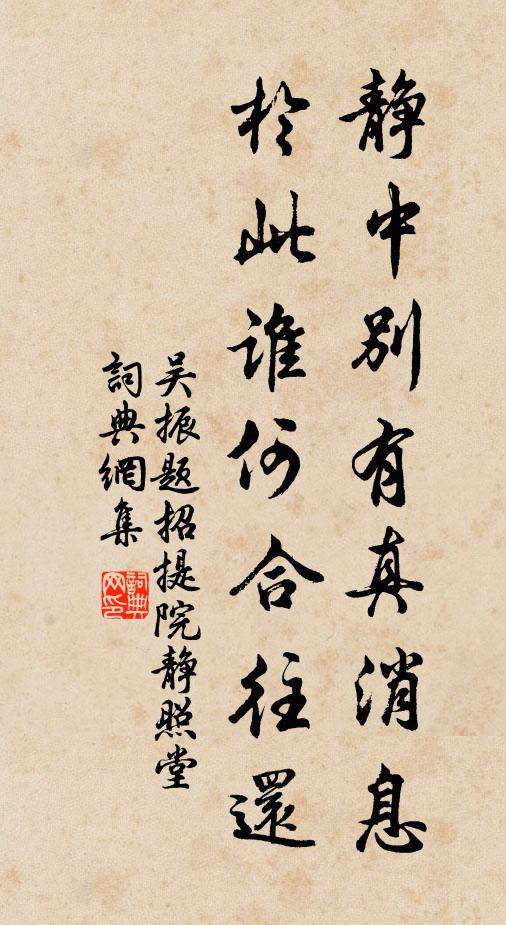 静中别有真消息
於此谁何合往還
吴振题招提院静照堂
詞典網集
詞典网印